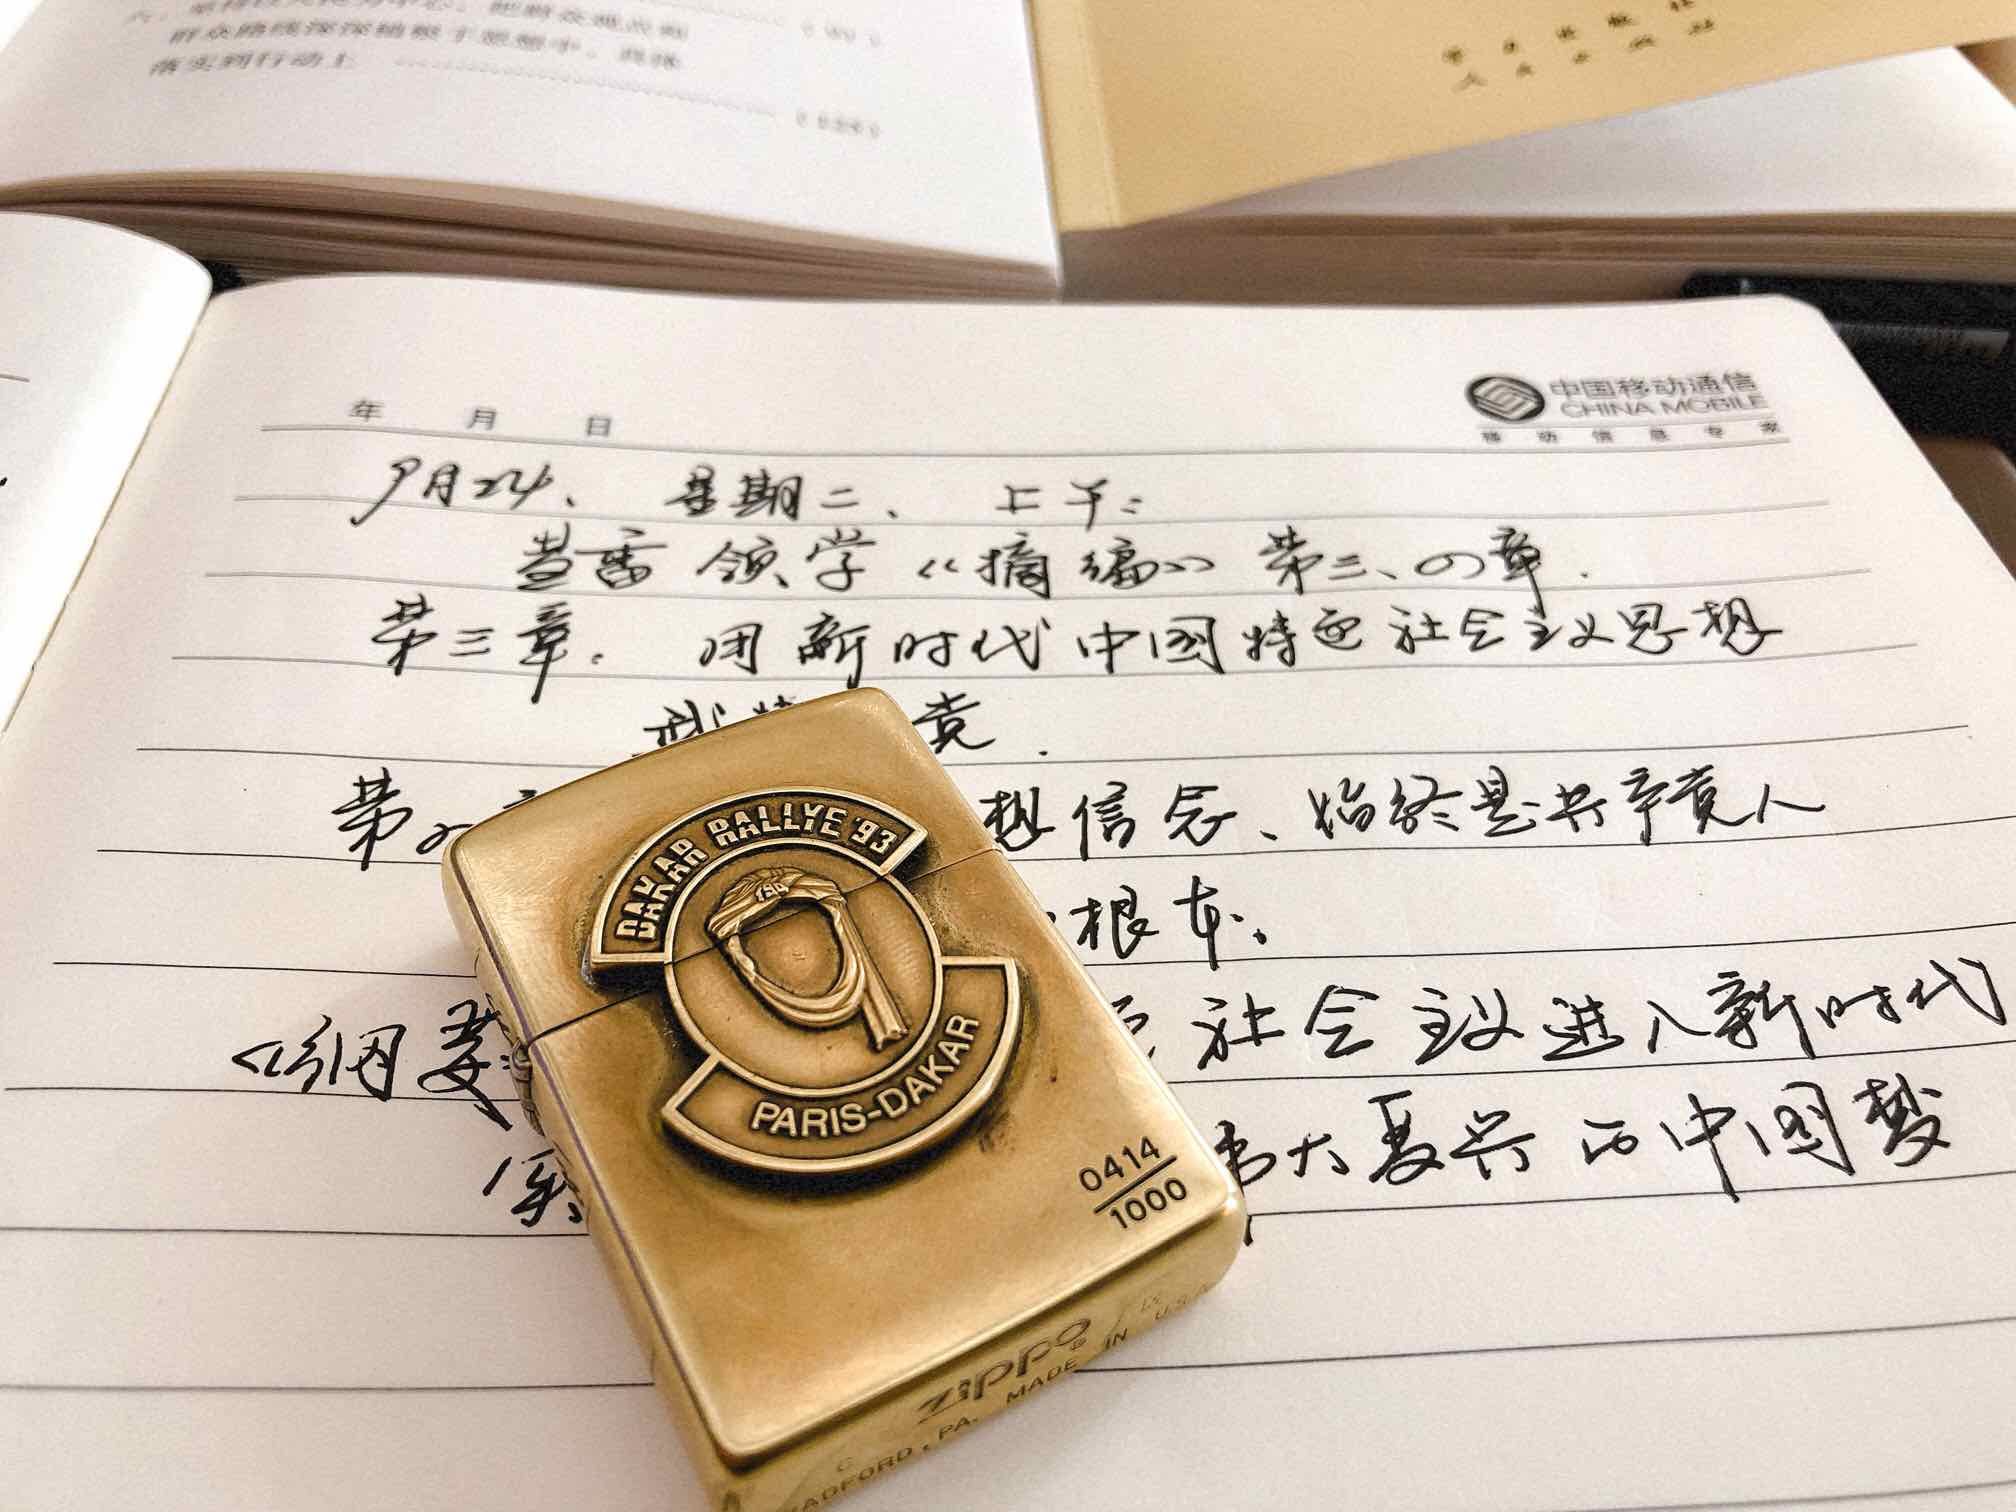 群众路线深深植根于思想中、具体
落实到行动上
人民出版社
中国移动通信
CHINA MOBILE
移动信息专家
年 月 日
9月24、星期二、上午:
领学《摘编》第三、四章.
第三章. 用新时代中国特色社会主义思想
武 党.
第 想信念、始终是共产党人
根本.
《纲要 社会主义进入新时代
实 伟大复兴的中国梦
DAKAR RALLYE '93
PARIS-DAKAR
0414
1000
zippo
BRADFORD, PA. MADE IN U.S.A.